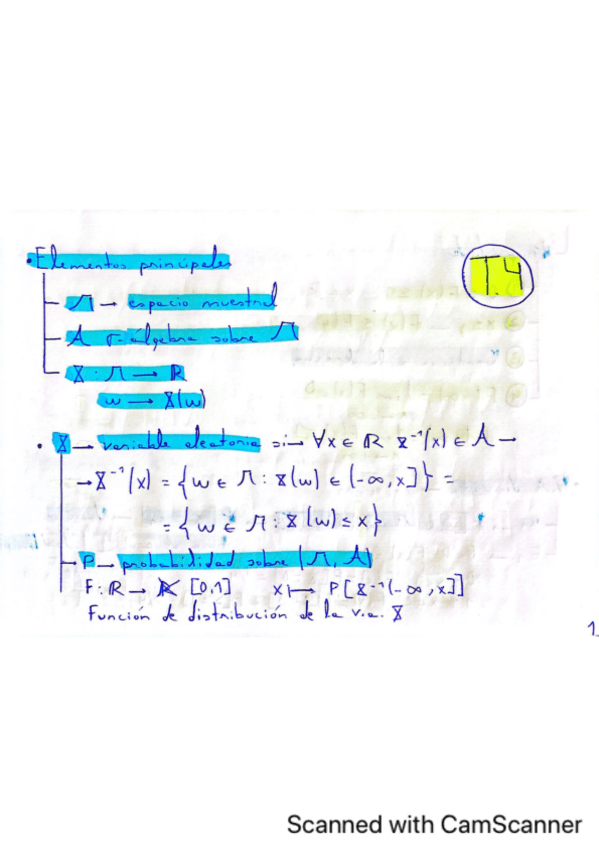 • Elementos principales
T.4
Ω → espacio muestral
A σ-álgebra sobre Ω
X : Ω → ℝ
w → X(w)
• X → variable aleatoria si → ∀x ∈ ℝ X⁻¹(x) ∈ A →
→ X⁻¹(x) = { w ∈ Ω : X(w) ∈ (-∞, x] } =
= { w ∈ Ω : X(w) ≤ x }
→ P → probabilidad sobre (Ω, A)
F : ℝ → [0,1] x ↦ P[X⁻¹(-∞, x]]
Función de distribución de la v.a. X
1
Scanned with CamScanner